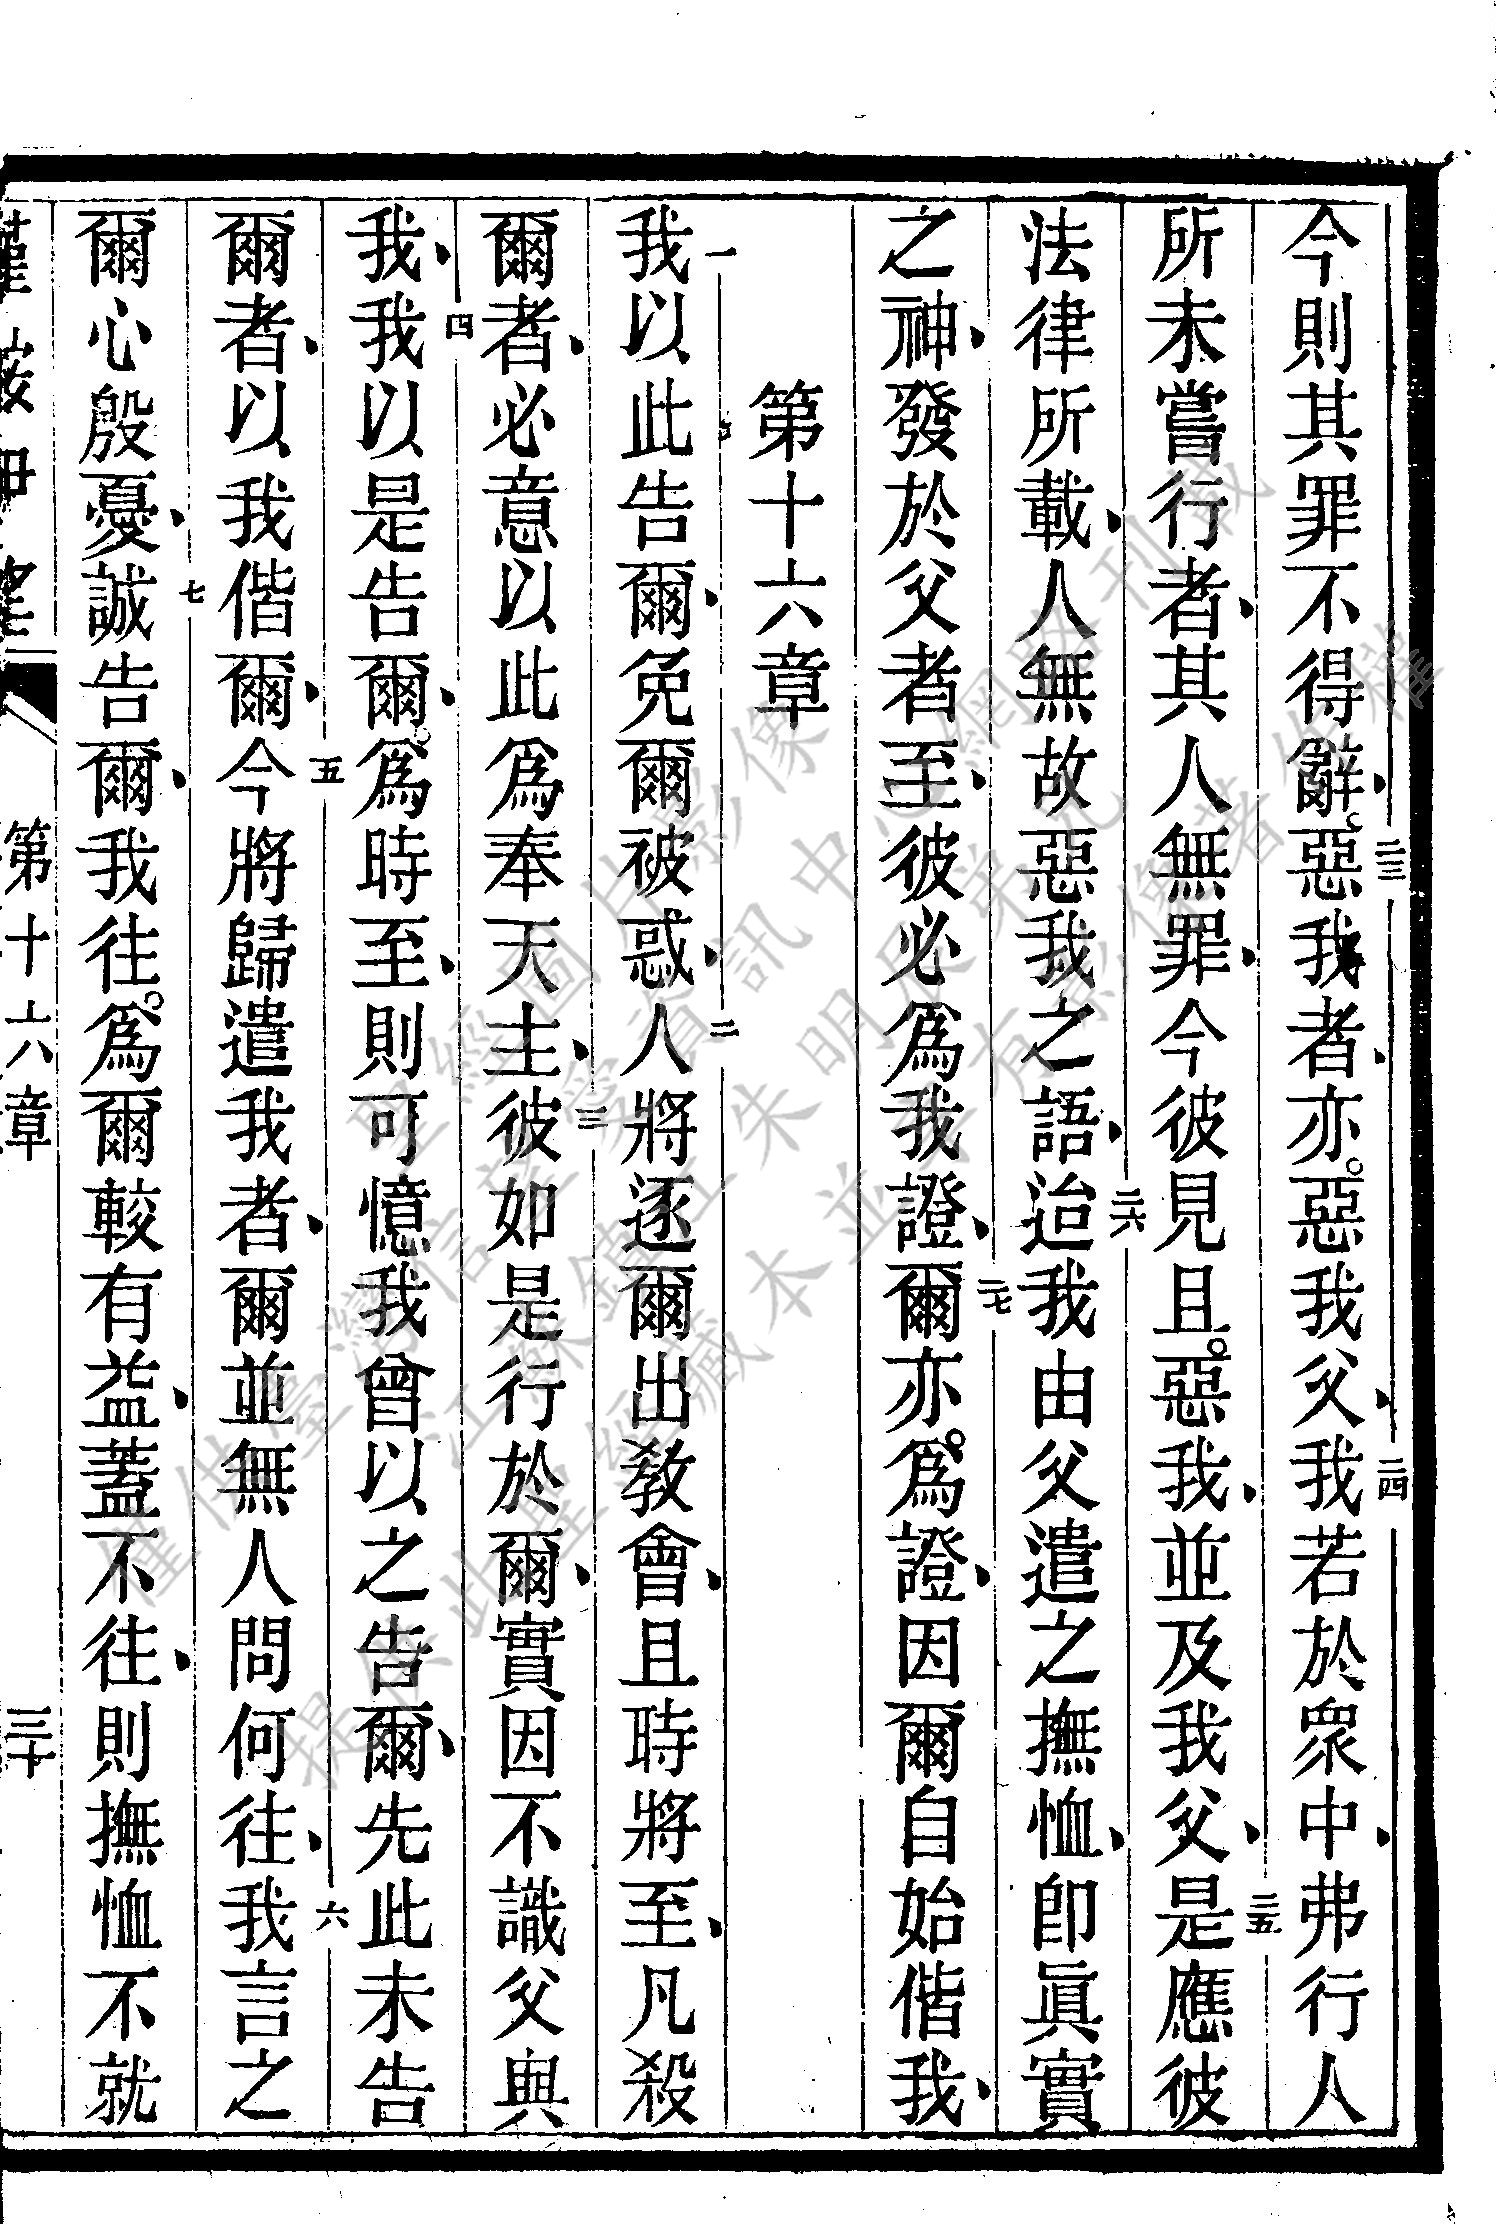 今則其罪不得辭、二三惡我者、亦惡我父、二四我若於衆中、弗行人
所未嘗行者、其人無罪、今彼見且惡我、並及我父、二五是應彼
法律所載、人無故惡我之語、二六迨我由父遣之撫恤、卽眞實
之神、發於父者至、彼必爲我證、二七爾亦爲證、因爾自始偕我、
第十六章
一我以此告爾、免爾被惑、二人將逐爾出敎會、且時將至、凡殺
爾者、必意以此爲奉天主、三彼如是行於爾、實因不識父與
我、四我以是告爾、爲時至、則可憶我曾以之告爾、先此未告
爾者、以我偕爾、五今將歸遣我者、爾並無人問何往、六我言之
爾心殷憂、七誠告爾、我往、爲爾較有益、蓋不往、則撫恤不就
第十六章
三十